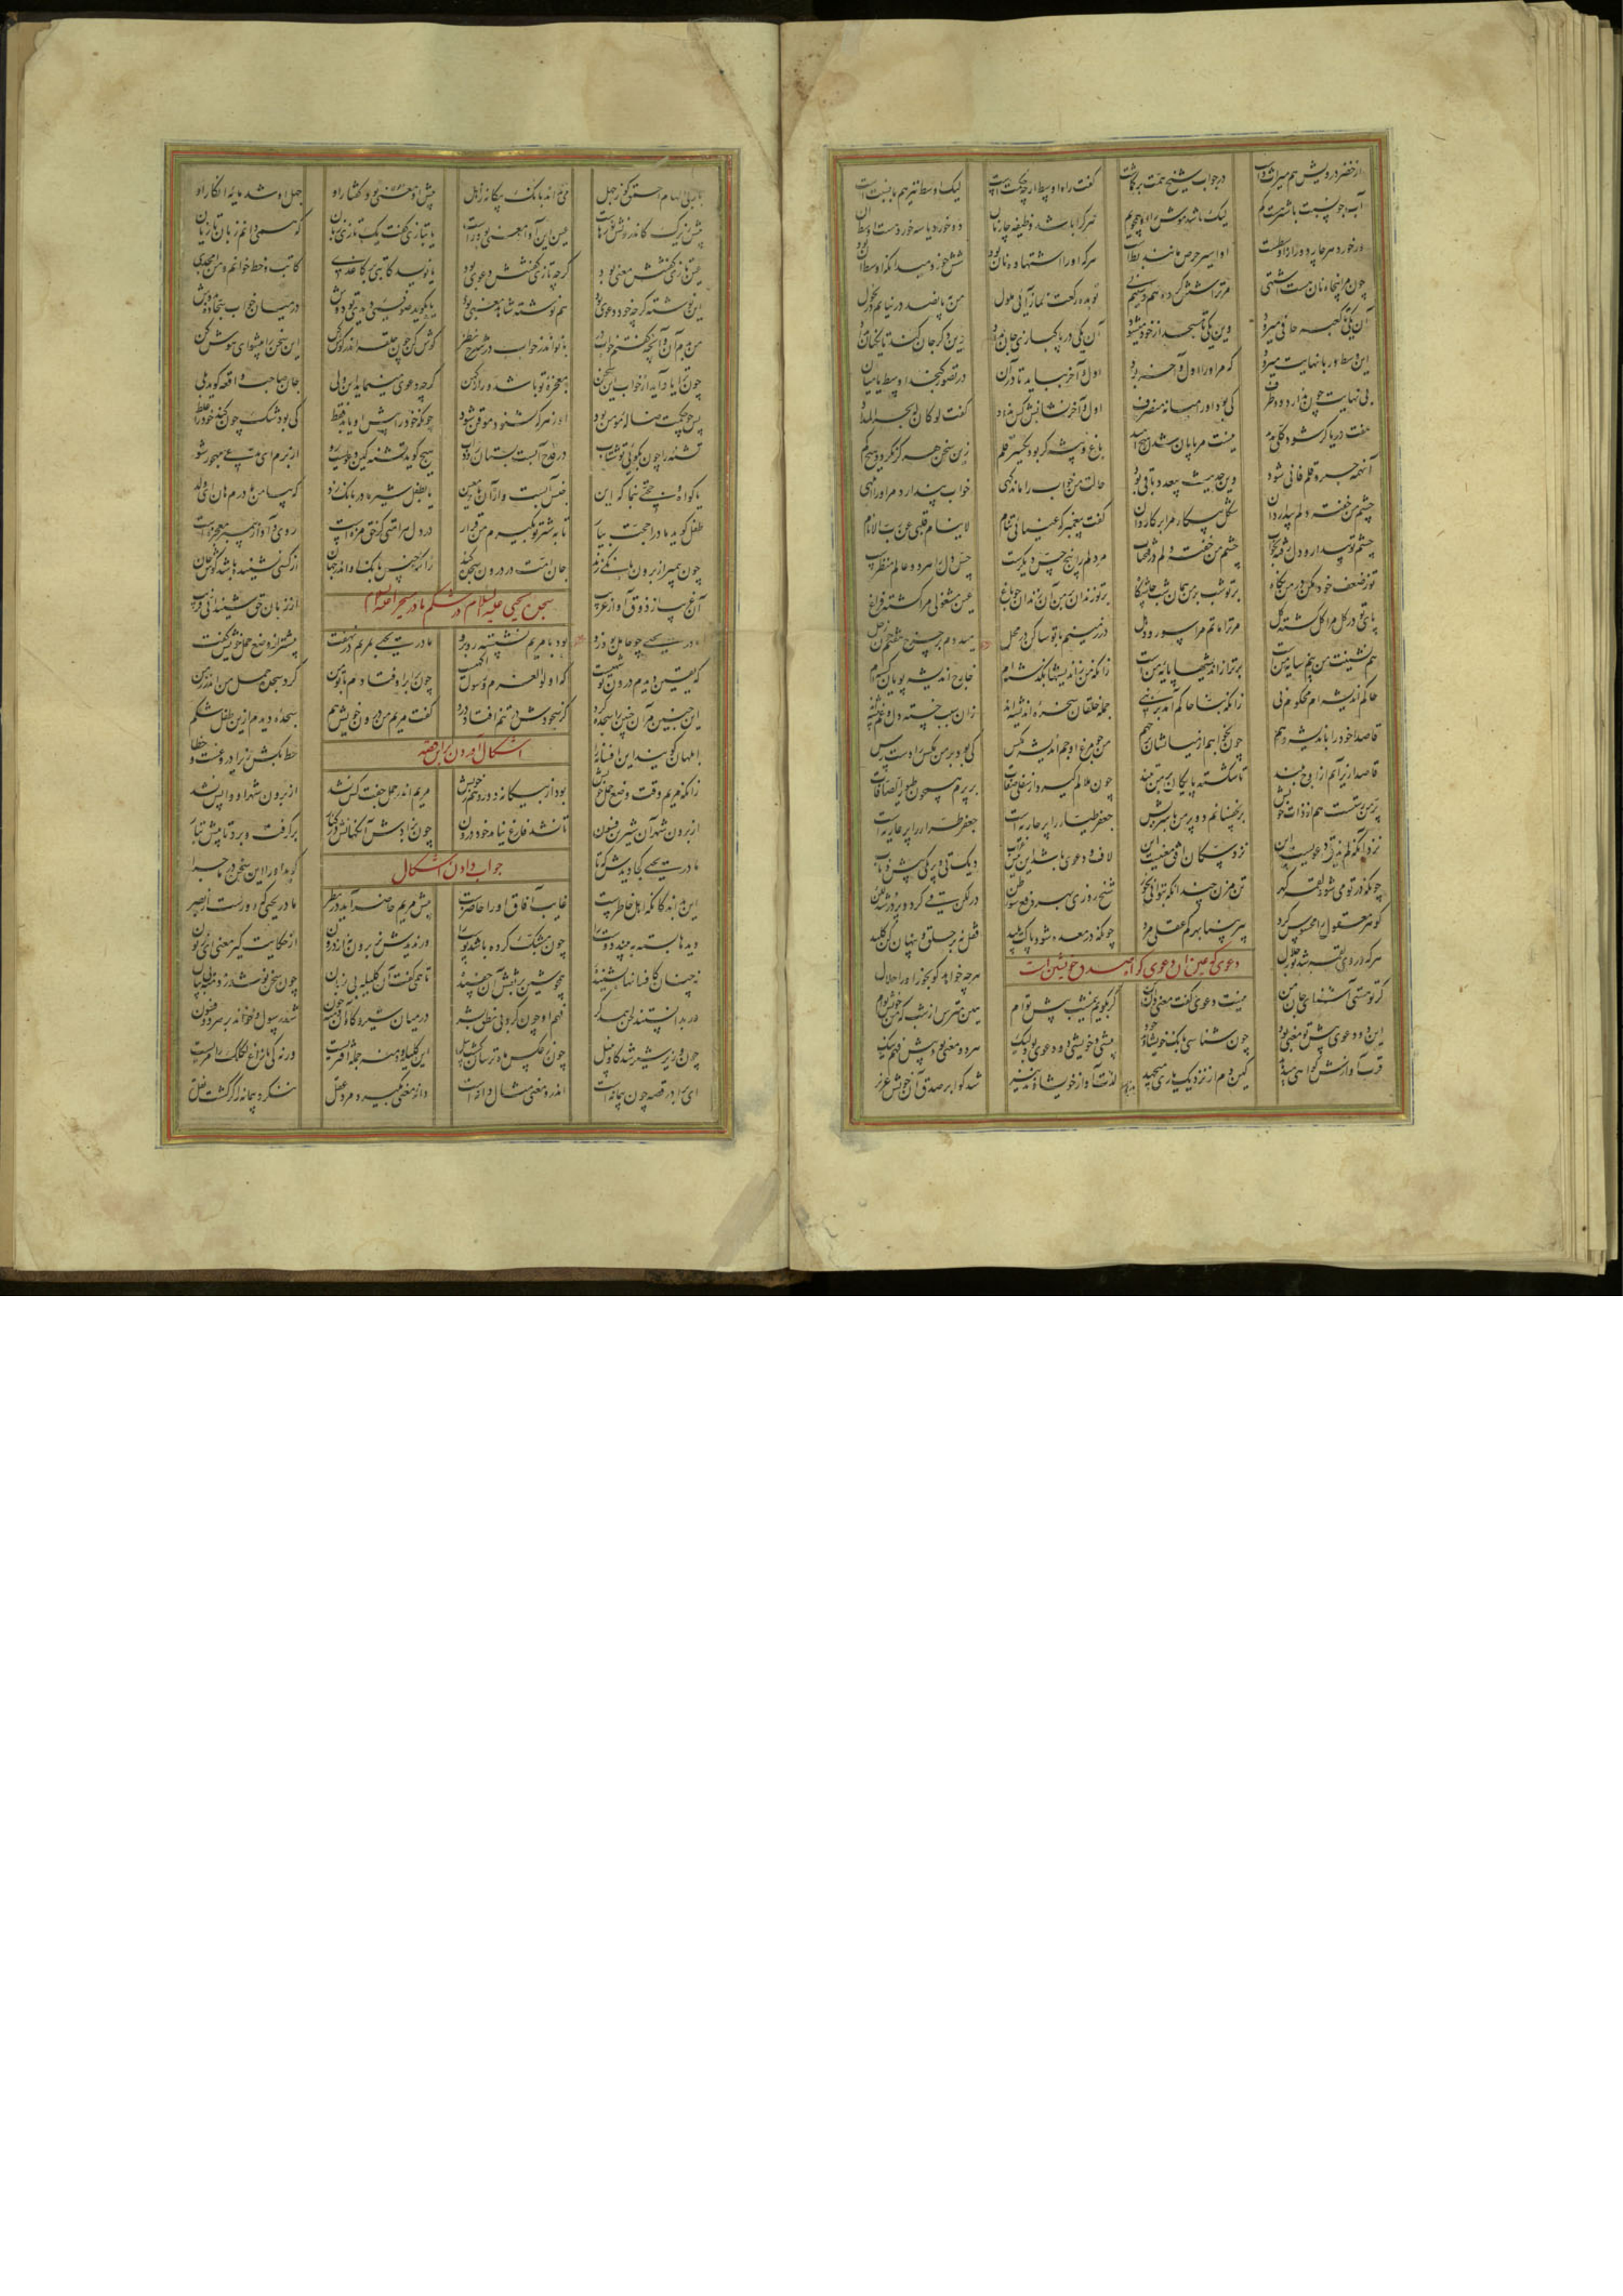 از خضر درویش هم میراث داشت در جواب شیخ همت برگماشت گفت راه اوسط ار چه حکمتست لیک اوسط نیز هم با نسبتست
آب جو نسبت باشتر هست کم لیک باشد موش را او همچو یم هر کرا باشد وظیفه چار نان دو خورد یا سه خورد هست اوسط آن
ور خورد هر چار دور از اوسطست او اسیر حرص مانند بطست هر که او را اشتها ده نان بود شش خورد میدانکه اوسط آن بود
چون مرا پنجاه نان هست اشتهی مر ترا شش گرده هم دستیم نی تو بده رکعت نماز آئی ملول من بپانصد در نیایم در نحول
آن یکی تا کعبه حافی میرود وین یکی تا مسجد از خود میشود آن یکی در پاکبازی جان بداد وین دگر جان کند تا یک نان بداد
این وسط در با نهایت میرود که مر او را اول و آخر بود اول و آخر بباید تا در آن در تصور گنجد اوسط یا میان
بی نهایت چون ندارد دو طرف کی بود او را میانه منصرف اول و آخر نشانش کس نداد گفت لو کان له البحر مداد
هفت دریا گر شود کلی مداد نیست مر پایان شدن را هیچ امید باغ و بیشه گر بود یکسر قلم زین سخن هرگز نگردد هیچ کم
آنهمه حبر و قلم فانی شود وین حدیث بی عدد باقی بود حالت من خواب را ماند گهی خواب پندارد مر او را گمرهی
چشم من خفته دلم بیدار دان شکل بیکار مرا بر کار دان گفت پیغمبر که عینای تنام لا ینام قلبی عن رب الانام
چشم تو بیدار و دل خفته بخواب چشم من خفته دلم در فتح باب مر دلم را پنج حس دیگرست حس دل را هر دو عالم منظرست
تو ز ضعف خود مکن در من نگاه بر تو شب بر من همان شب چاشتگاه بر تو زندان بر من آن زندان چو باغ عین مشغولی مرا گشته فراغ
پای تو در گل مرا گل گشته گل مر ترا ماتم مرا سور و دهل در زمینم با تو ساکن در محل میدوم بر چرخ هفتم چون زحل
هم نشینت من نیم سایه منست برتر از اندیشها پایه منست زانکه من ز اندیشها بگذشته‌ام خارج اندیشه پویان گشته‌ام
حاکم اندیشه‌ام محکوم نی زانکه بنا حاکم آمد بر بنی جمله خلقان سخره اندیشه‌اند زان سبب خسته دل و غم پیشه‌اند
قاصدا خود را باندیشه دهم چون بخواهم از میانشان بر جهم من چو مرغ اوجم اندیشه مگس کی بود بر من مگس را دست رس
قاصدا زیر آیم از اوج بلند تا شکسته پایگان بر من تنند چون ملالم گیرد از سفلی صفات بر پرم همچون طیور الصافات
پر من رستست هم از ذات خویش بر نچسبانم دو پر من با سریش جعفر طیار را پر جاریه است جعفر طرار را پر عاریه است
نزد آنکه لم یذق دعویست این نزد سکان افق معنیست این لاف و دعوی باشد این پیش غراب دیگ تی و پر یکی پیش ذباب
چونکه در تو می شود لقمه گهر تن مزن چندانکه بتوانی بخور شیخ روزی بهر دفع سوء ظن در لگن قی کرد و پر در شد لگن
گوهر معقول را محسوس کرد پیر بینا بهر کم عقلی مرد چونکه در معده شود پاکت پلید قفل نه بر حلق و پنهان کن کلید
هر که در وی لقمه شد نور جلال هر چه خواهد گو بخور او را حلال
دعوی که عین آن دعوی گواه صدق خویش است
گر تو هستی آشنای جان من نیست دعوی گفت معنی لان من گر بگویم نیم شب پیش توام هین مترس از شب که من خویش توام
این دو دعوی پیش تو معنی بود چون شناسی بانگ خویشاوند خود پیشی و خویشی دو دعوی بود لیک هر دو معنی بود پیش فهم نیک
قرب آوازش گواهی میدهد کین دم از نزدیک یاری میجهد لذت آواز خویشاوند نیز شد گوا بر صدق آن خویش عزیز
باز بی الهام احمق کو ز جهل می نداند بانگ بیگانه ز اهل پیش او دعوی بود گفتار او جهل او شد مایه انکار او
پیش زیرک کاندرونش نورهاست عین این آواز معنی بود راست یا بتازی گفت یک تازی زبان که همی دانم زبان تازیان
عین تازی گفتنش معنی بود گرچه تازی گفتنش دعوی بود یا نویسد کاتبی بر کاغذی کاتب و خط خوانم و من ابجدی
این نوشته گرچه خود دعوی بود هم نوشته شاهد معنی بود یا بگوید صوفیی دیدی تو دوش در میان خواب سجاده بدوش
من بدم آن و آنچه گفتم خواب در با تو اندر خواب در شرح نظر گوش کن چون حلقه اندر گوش کن این سخن را پیشوای هوش کن
چون ترا یاد آید آن خواب این سخن معجزه تو باشد و راز کهن گرچه دعوی مینماید این ولی جان صاحب واقعه گوید بلی
پس چو حکمت ضاله مومن بود آن ز هر که بشنود موقن شود چونکه خود را پیش او یابد فقط کی بود شک چون کند خود را غلط
تشنه را چون بگوئی تو شتاب در قدح آبست بستان زود آب هیچ گوید تشنه کین دعویست رو از برم ای مدعی مهجور شو
یا گواه و حجتی بنما که این جنس آبست و از آن ماء معین یا بطفل شیر مادر بانگ زد که بیا من مادرم هان ای ولد
طفل گوید مادرا حجت بیار تا بشیرت بگیرم من قرار در دل هر امتی کز حق مزه است روی و آواز پیمبر معجزه است
چون پیمبر از برون بانگی زند جان امت در درون سجده کند زانکه جنس بانگ او اندر جهان از کسی نشنیده باشد گوش جان
آن غریب از ذوق آواز غریب از زبان حق شنید انی قریب
سجده یحیی علیه السلام در شکم مادر مسیح را علیه السلام
مادر یحیی چو حامل بود ازو بود با مریم نشسته روبرو مادر یحیی بمریم در نهفت پیشتر از وضع حمل خویش گفت
که یقین دیدم درون تو شهیست کو اولوالعزم و رسول آگهیست چون برابر اوفتادم با تو من کرد سجده حمل من اندر زمن
این جنین مر آن جنین را سجده کرد کز سجودش در تنم افتاد درد گفت مریم من درون خویش هم سجده دیدم ازین طفل شکم
اشکال آوردن بر این قصه
ابلهان گویند این افسانه را خط بکش زیرا دروغست و خطا
زانکه مریم وقت وضع حمل خویش بود از بیگانه دور و هم ز خویش مریم اندر حمل جفت کس نشد از برون شهر او واپس نشد
از برون شهر آن شیرین فسون تا نشد فارغ نیامد خود درون چون بزادش آنگهانش در کنار برگرفت و برد تا پیش تبار
جواب دادن اشکال
مادر یحیی کجا دیدش که تا گوید او را این سخن در ماجرا
این بداند کانکه اهل خاطرست غایب آفاق او را حاضرست پیش مریم حاضر آید در نظر مادر یحیی که دورست از بصر
دیدها بسته ببیند دوست را چون مشبک کرده باشد پوست را ور ندیدش نز برون نز اندرون از حکایت گیر معنی ای زبون
نی چنان کافسانها بشنیده همچو شین بر نقش آن چفسیده تا همی گفت آن کلیله بی زبان چون سخن نوشد ز دمنه بی بیان
ور بدانستند لحن همدگر فهم او چون کرد بی نطقی بشر در میان شیر و گاو آن دمنه چون شد رسول و خواند بر هر دو فسون
چون وزیر شیر شد گاو نبیل چون ز عکس ماه ترسان گشت پیل این کلیله و دمنه جمله افتریست ورنه کی با زاغ لکلک را مریست
ای برادر قصه چون پیمانه است اندرو معنی مثال دانه است دانه معنی بگیرد مرد عقل ننگرد پیمانه را گر گشت نقل